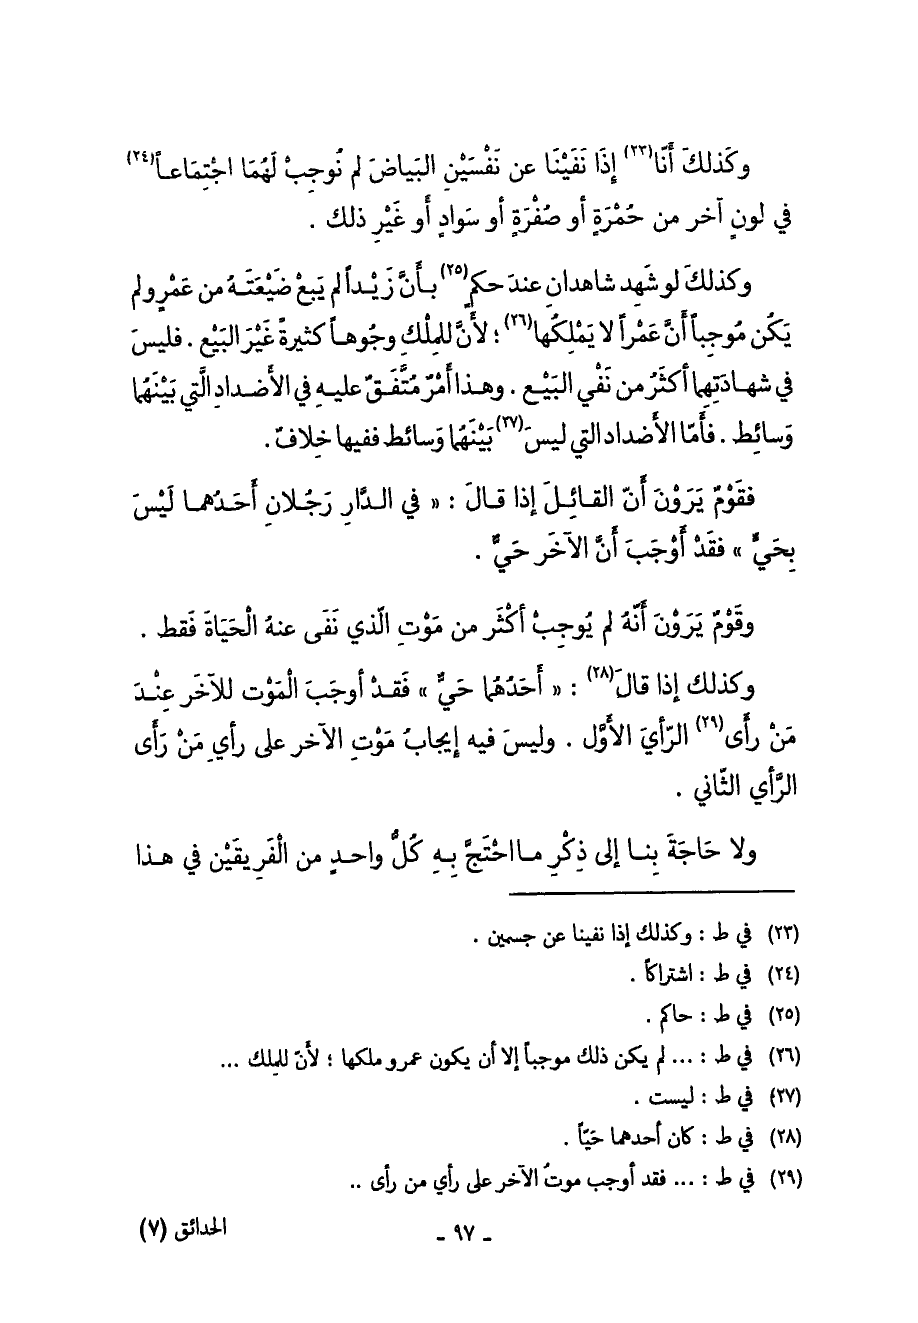 وكَذلكَ أنّا(٢٣) إذَا نَفَيْنَا عن نَفْسَيْنِ البَياضَ لم نُوجبْ لَهُمَا اجْتِمَاعاً(٢٤)
في لونٍ آخر من حُمْرَةٍ أو صُفْرَةٍ أو سَوادٍ أو غَيْرِ ذلك .
وكذلكَ لو شَهِد شاهدانِ عندَ حكمٍ(٢٥) بأنَّ زَيْداً لم يَبعْ ضَيْعَتَهُ من عَمْرٍو لم
يَكُن مُوجباً أنَّ عَمْراً لا يَمْلِكُها(٢٦) ؛ لأنَّ للمِلْكِ وجُوهاً كثيرةً غَيْرَ البَيْع . فليسَ
في شهادَتِهما أكثَرُ من نَفْي البَيْع . وهذا أمْرٌ مُتَّفَقٌ عليهِ في الأضدادِ الَّتي بَيْنَهُا
وَسائِط . فأمّا الأضداد التي ليسَ(٢٧) بَيْنَهُا وَسائط ففيها خِلافٌ .
فقَوْمٌ يَرَوْنَ أنّ القائِلَ إذا قالَ : « في الدَّارِ رَجُلانِ أحَدُهما لَيْسَ
بِحَيٍّ » فقَدْ أوْجَبَ أنَّ الآخَر حَيٌّ .
وقَوْمٌ يَرَوْنَ أنّهُ لم يُوجِبْ أكْثَر من مَوْتِ الّذي نَفَى عنهُ الْحَيَاةَ فَقط .
وكذلك إذا قالَ(٢٨) : « أحَدُهُما حَيٌّ » فَقدْ أوجَبَ الْمَوْت للآخَر عِنْدَ
مَنْ رأى(٢٩) الرّأيَ الأوَّل . وليسَ فيه إيجابُ مَوْتِ الآخر على رأيِ مَنْ رَأى
الرَّأي الثّاني .
ولا حَاجَةَ بِنا إلى ذِكْرِ ما احْتَجَّ بِهِ كُلُّ واحدٍ من الْفَرِيقَيْن في هذا
(٢٣) في ط : وكذلك إذا نفينا عن جسمين .
(٢٤) في ط : اشتراكاً .
(٢٥) في ط : حاكم .
(٢٦) في ط : ... لم يكن ذلك موجباً إلا أن يكون عمرو ملكها ؛ لأنّ للمِلك ...
(٢٧) في ط : ليست .
(٢٨) في ط : كان أحدهما حَيّاً .
(٢٩) في ط : ... فقد أوجب موتُ الآخر على رأي من رأى ..
ـ ٩٧ ـ
الحدائق (٧)